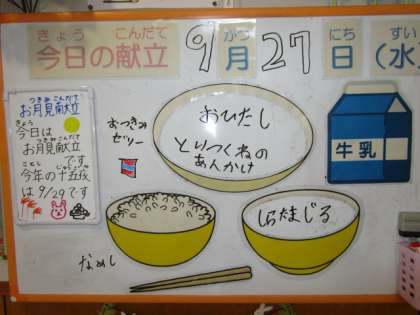 きょう こんだて
今日の献立
9
がつ
月
27
にち
日
すい
(水
つきみこんだて
お月見献立
きょう
今日は
つきみこんだて
お月見献立
です。
ことし じゅうごや
今年の十五夜
は9/29です
おつきみ
ゼリー
おひたし
とりつくねの
あんかけ
牛乳
なめし
しらたまじる